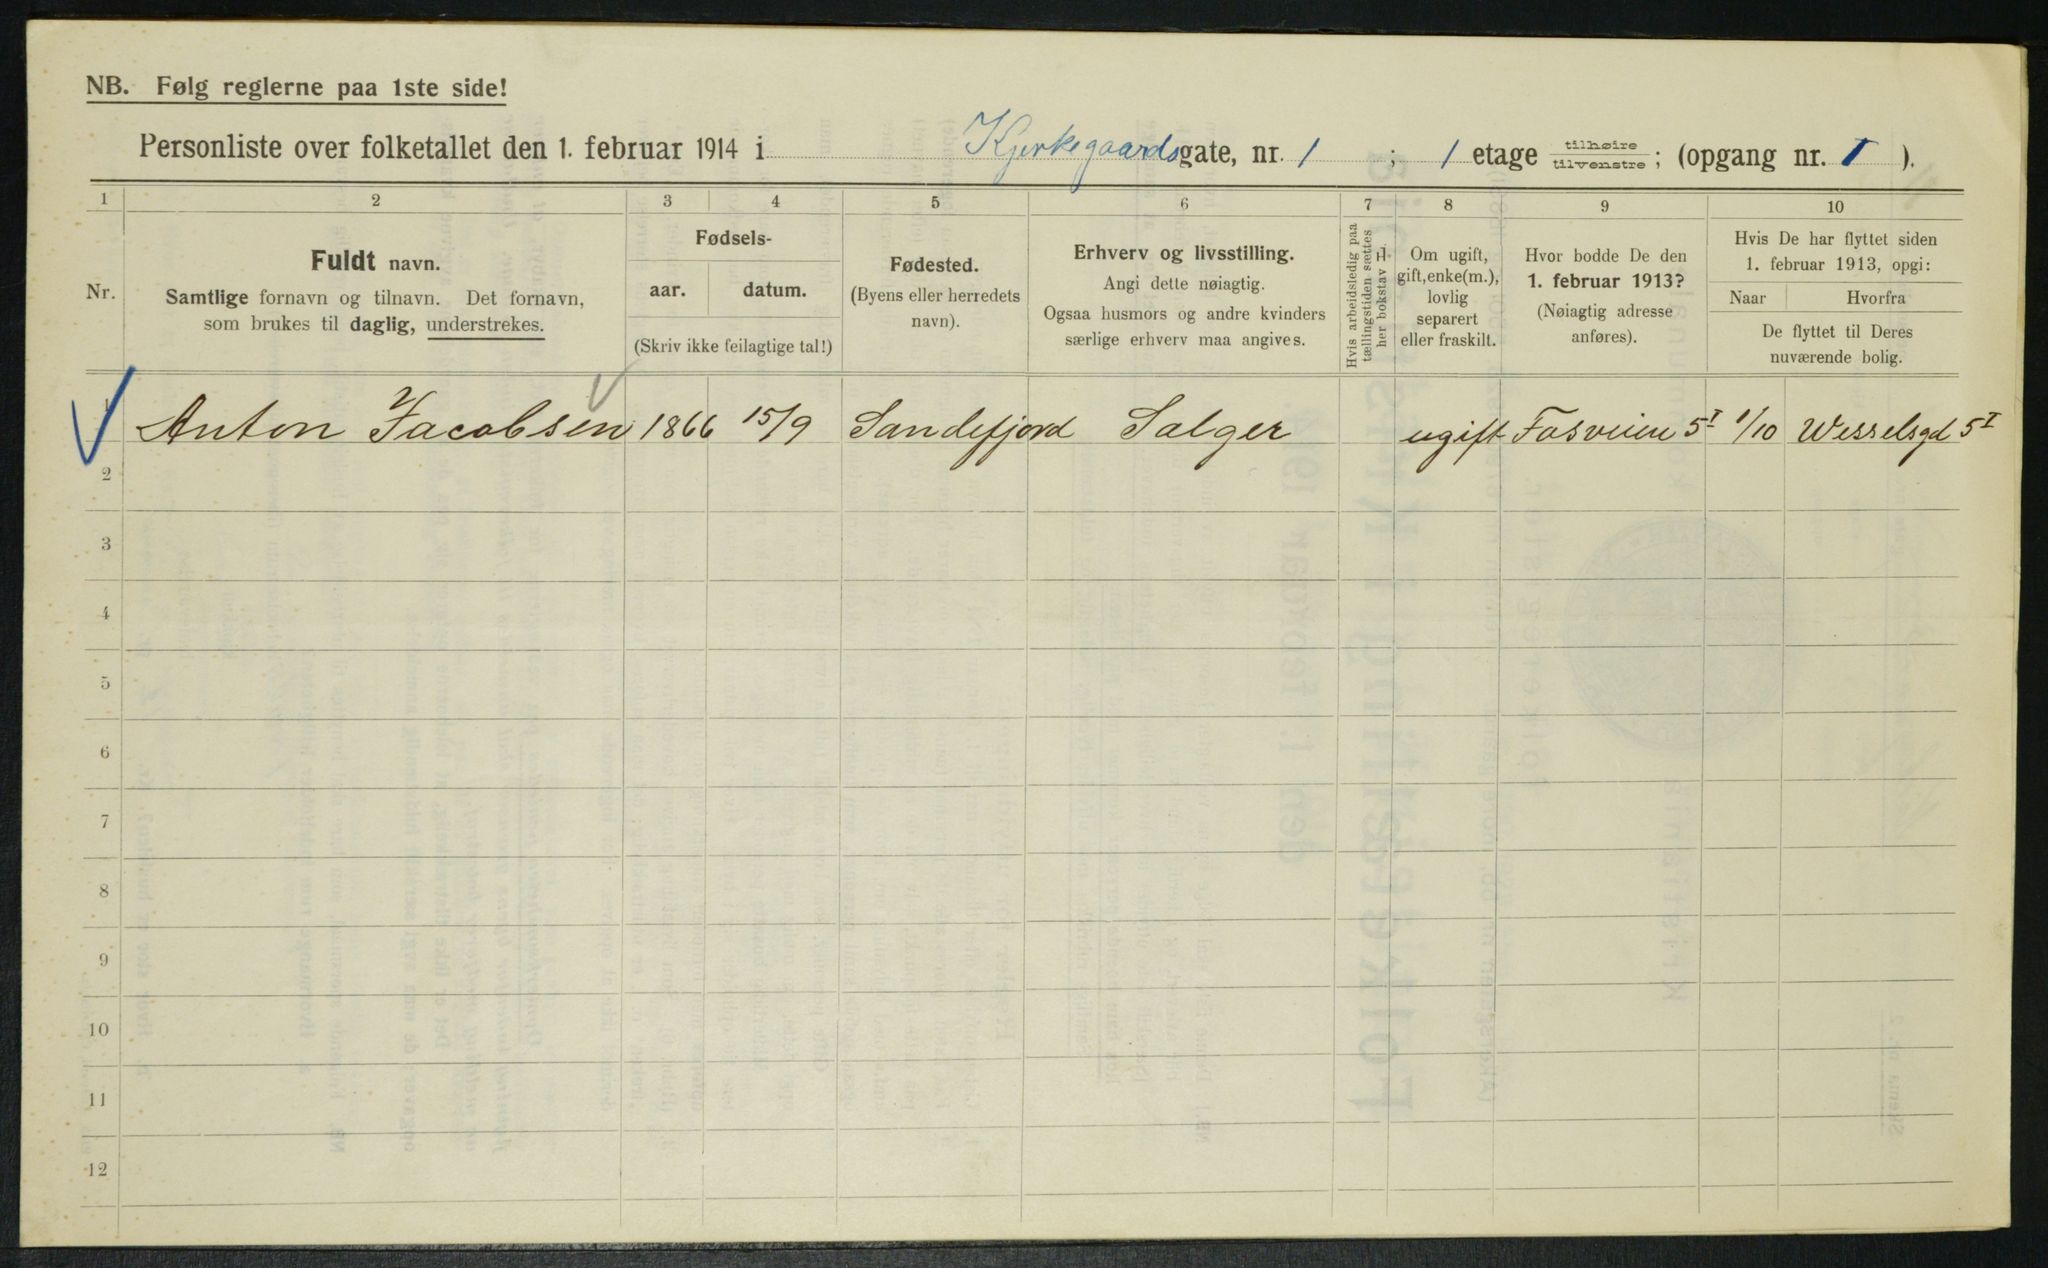 NB. Følg reglerne paa 1ste side!
Personliste over folketallet den 1. februar 1914 i Kjerkegaardsgate, nr. 1 ; 1 etage tilhøire tilvenstre ; (opgang nr. 1 ).
1 2 3 4 5 6 7 8 9 10
Nr.
Fuldt navn.
Samtlige fornavn og tilnavn. Det fornavn,
som brukes til daglig, understrekes.
Fødsels-
aar. datum.
(Skriv ikke feilagtige tal!)
Fødested.
(Byens eller herredets
navn).
Erhverv og livsstilling.
Angi dette nøiagtig.
Ogsaa husmors og andre kvinders
særlige erhverv maa angives.
Hvis arbeidsledig paa
tællingstiden sættes
her bokstav L.
Om ugift,
gift, enke(m.),
lovlig
separert
eller fraskilt.
Hvor bodde De den
1. februar 1913?
(Nøiagtig adresse
anføres).
Hvis De har flyttet siden
1. februar 1913, opgi:
Naar Hvorfra
De flyttet til Deres
nuværende bolig.
1 Anton Jacobsen 1866 15/9 Sandefjord Sælger ugift Fosveien 5 I 1/10 Wesselsgd 5 I
2
3
4
5
6
7
8
9
10
11
12